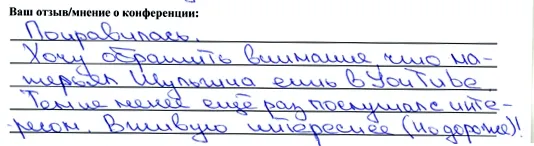 Ваш отзыв/мнение о конференции:
Понравилась.
Хочу обратить внимание, что ма-
терьял Шульгина есть в YouTube.
Тем не менее ещё раз послушала с инте-
ресом. Вживую интереснее (но дороже)!